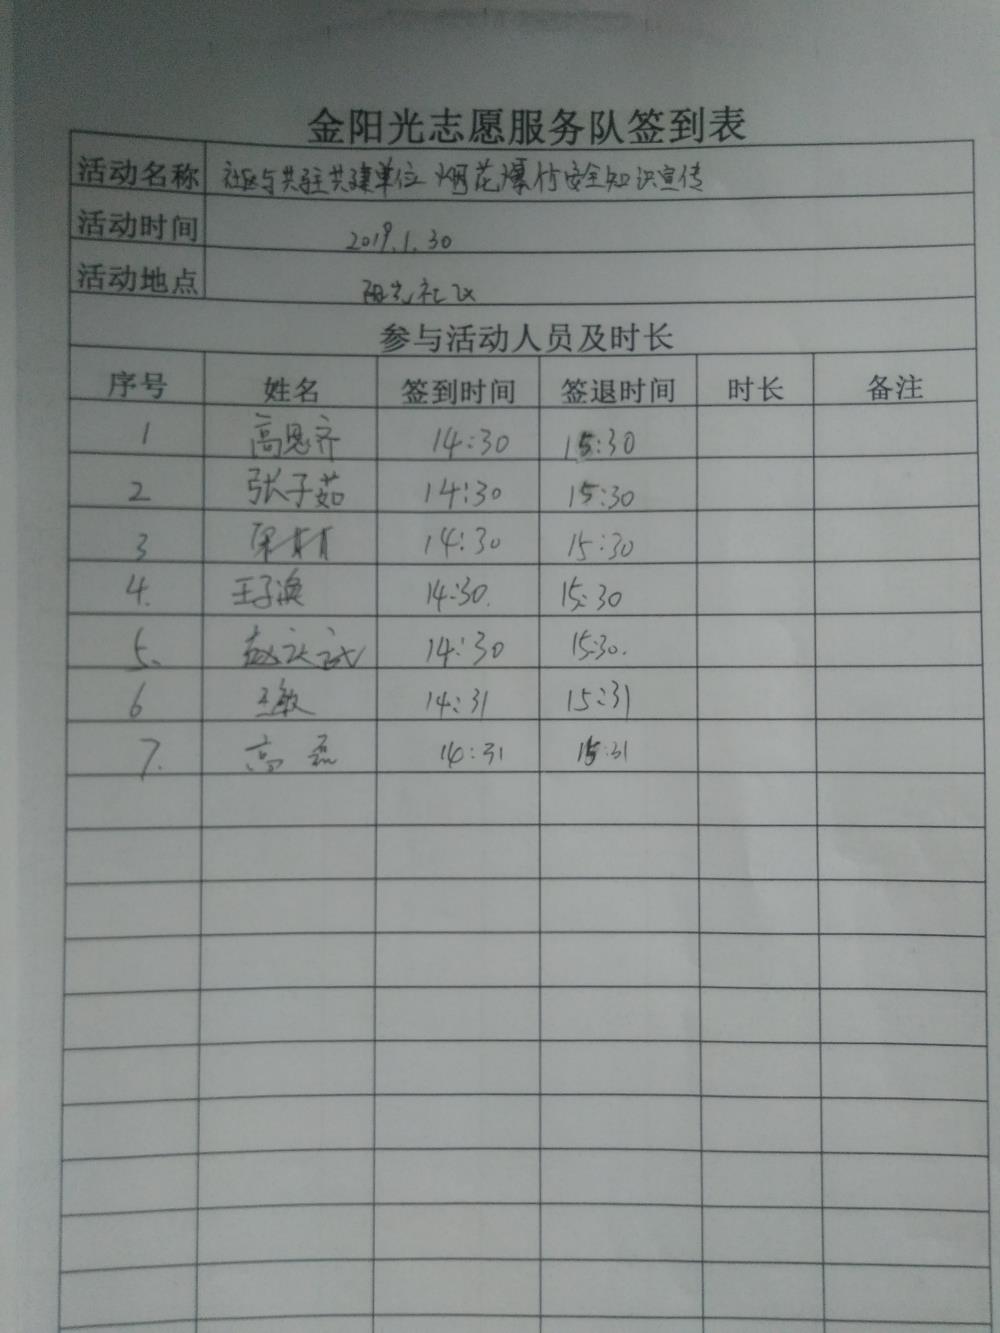 金阳光志愿服务队签到表
活动名称 社区与共驻共建单位烟花爆竹安全知识宣传
活动时间 2019.1.30
活动地点 阳光社区
参与活动人员及时长
序号 姓名 签到时间 签退时间 时长 备注
1 高恩齐 14:30 15:30
2 张子茹 14:30 15:30
3 14:30 15:30
4. 王子涣 14:30. 15:30
5. 赵 14:30 15:30.
6 王敏 14:31 15:31
7. 高磊 14:31 15:31